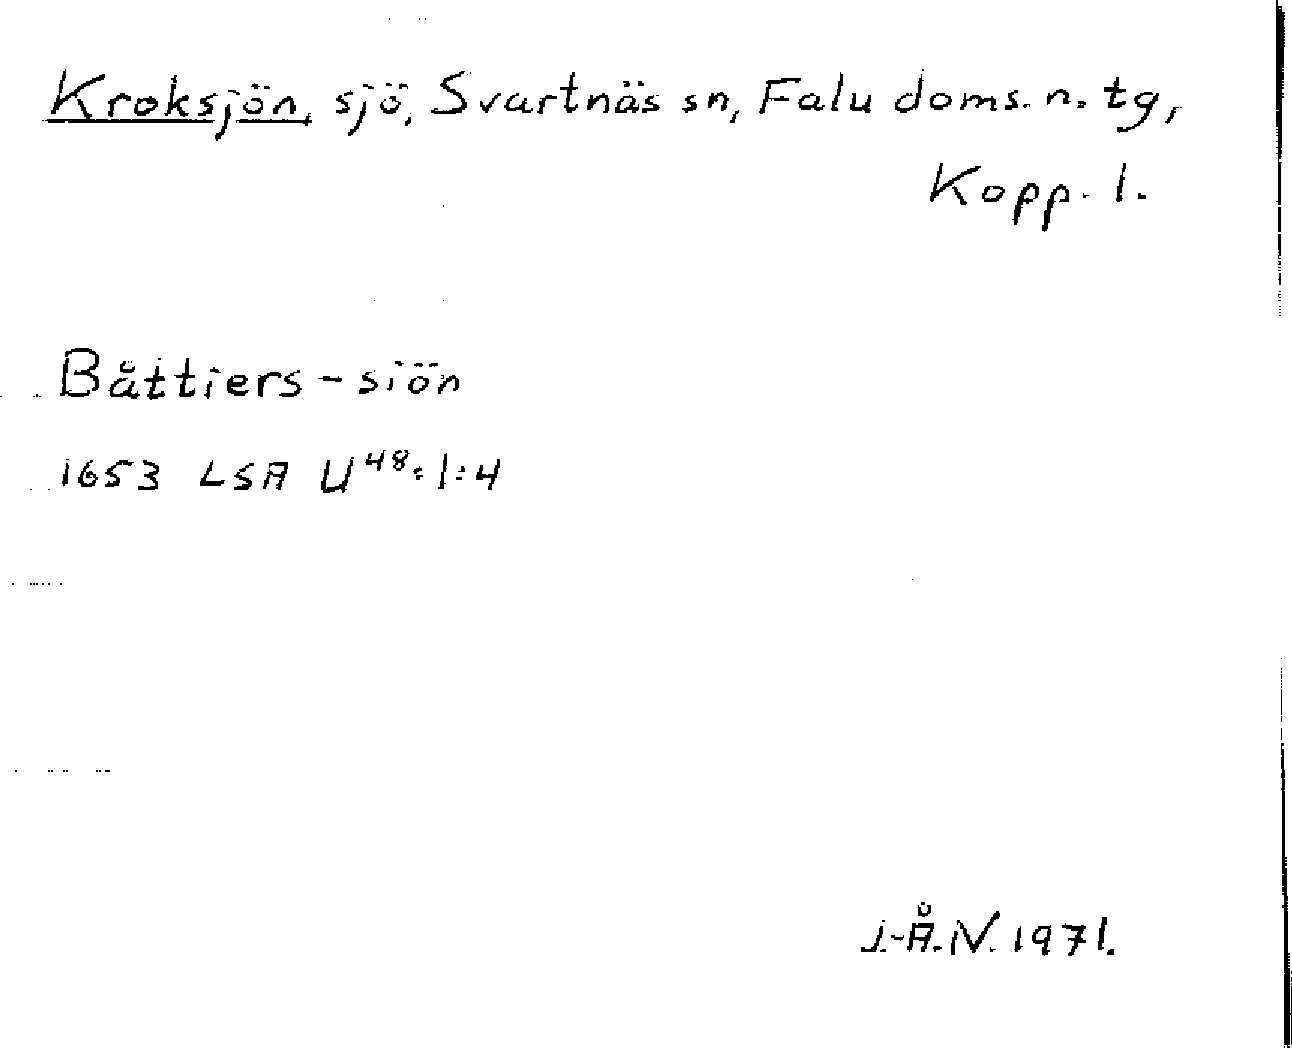 Kroksjön, sjö, Svartnäs sn, Falu doms. n. tg,
Kopp. l.
Båttiers-siön
1653 LSA U48:1:4
J.-Å.N. 1971.